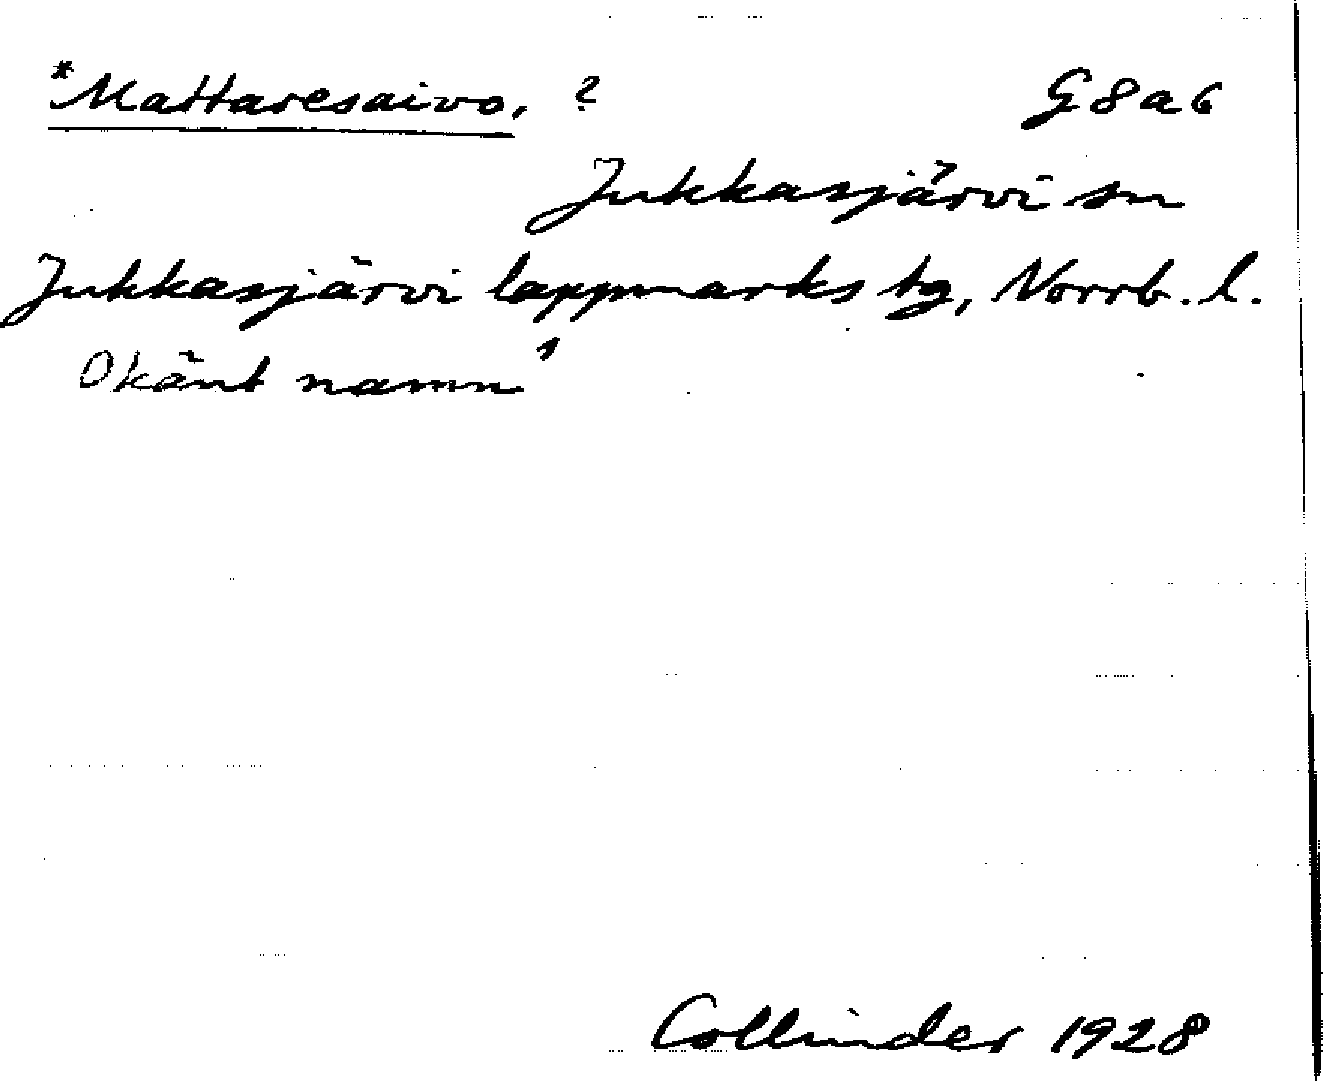 *Mattaresaivo, ? G8a6
Jukkasjärvi sn
Jukkasjärvi lappmarks tg, Norrb. l.
Okänt namn¹
Collinder 1928